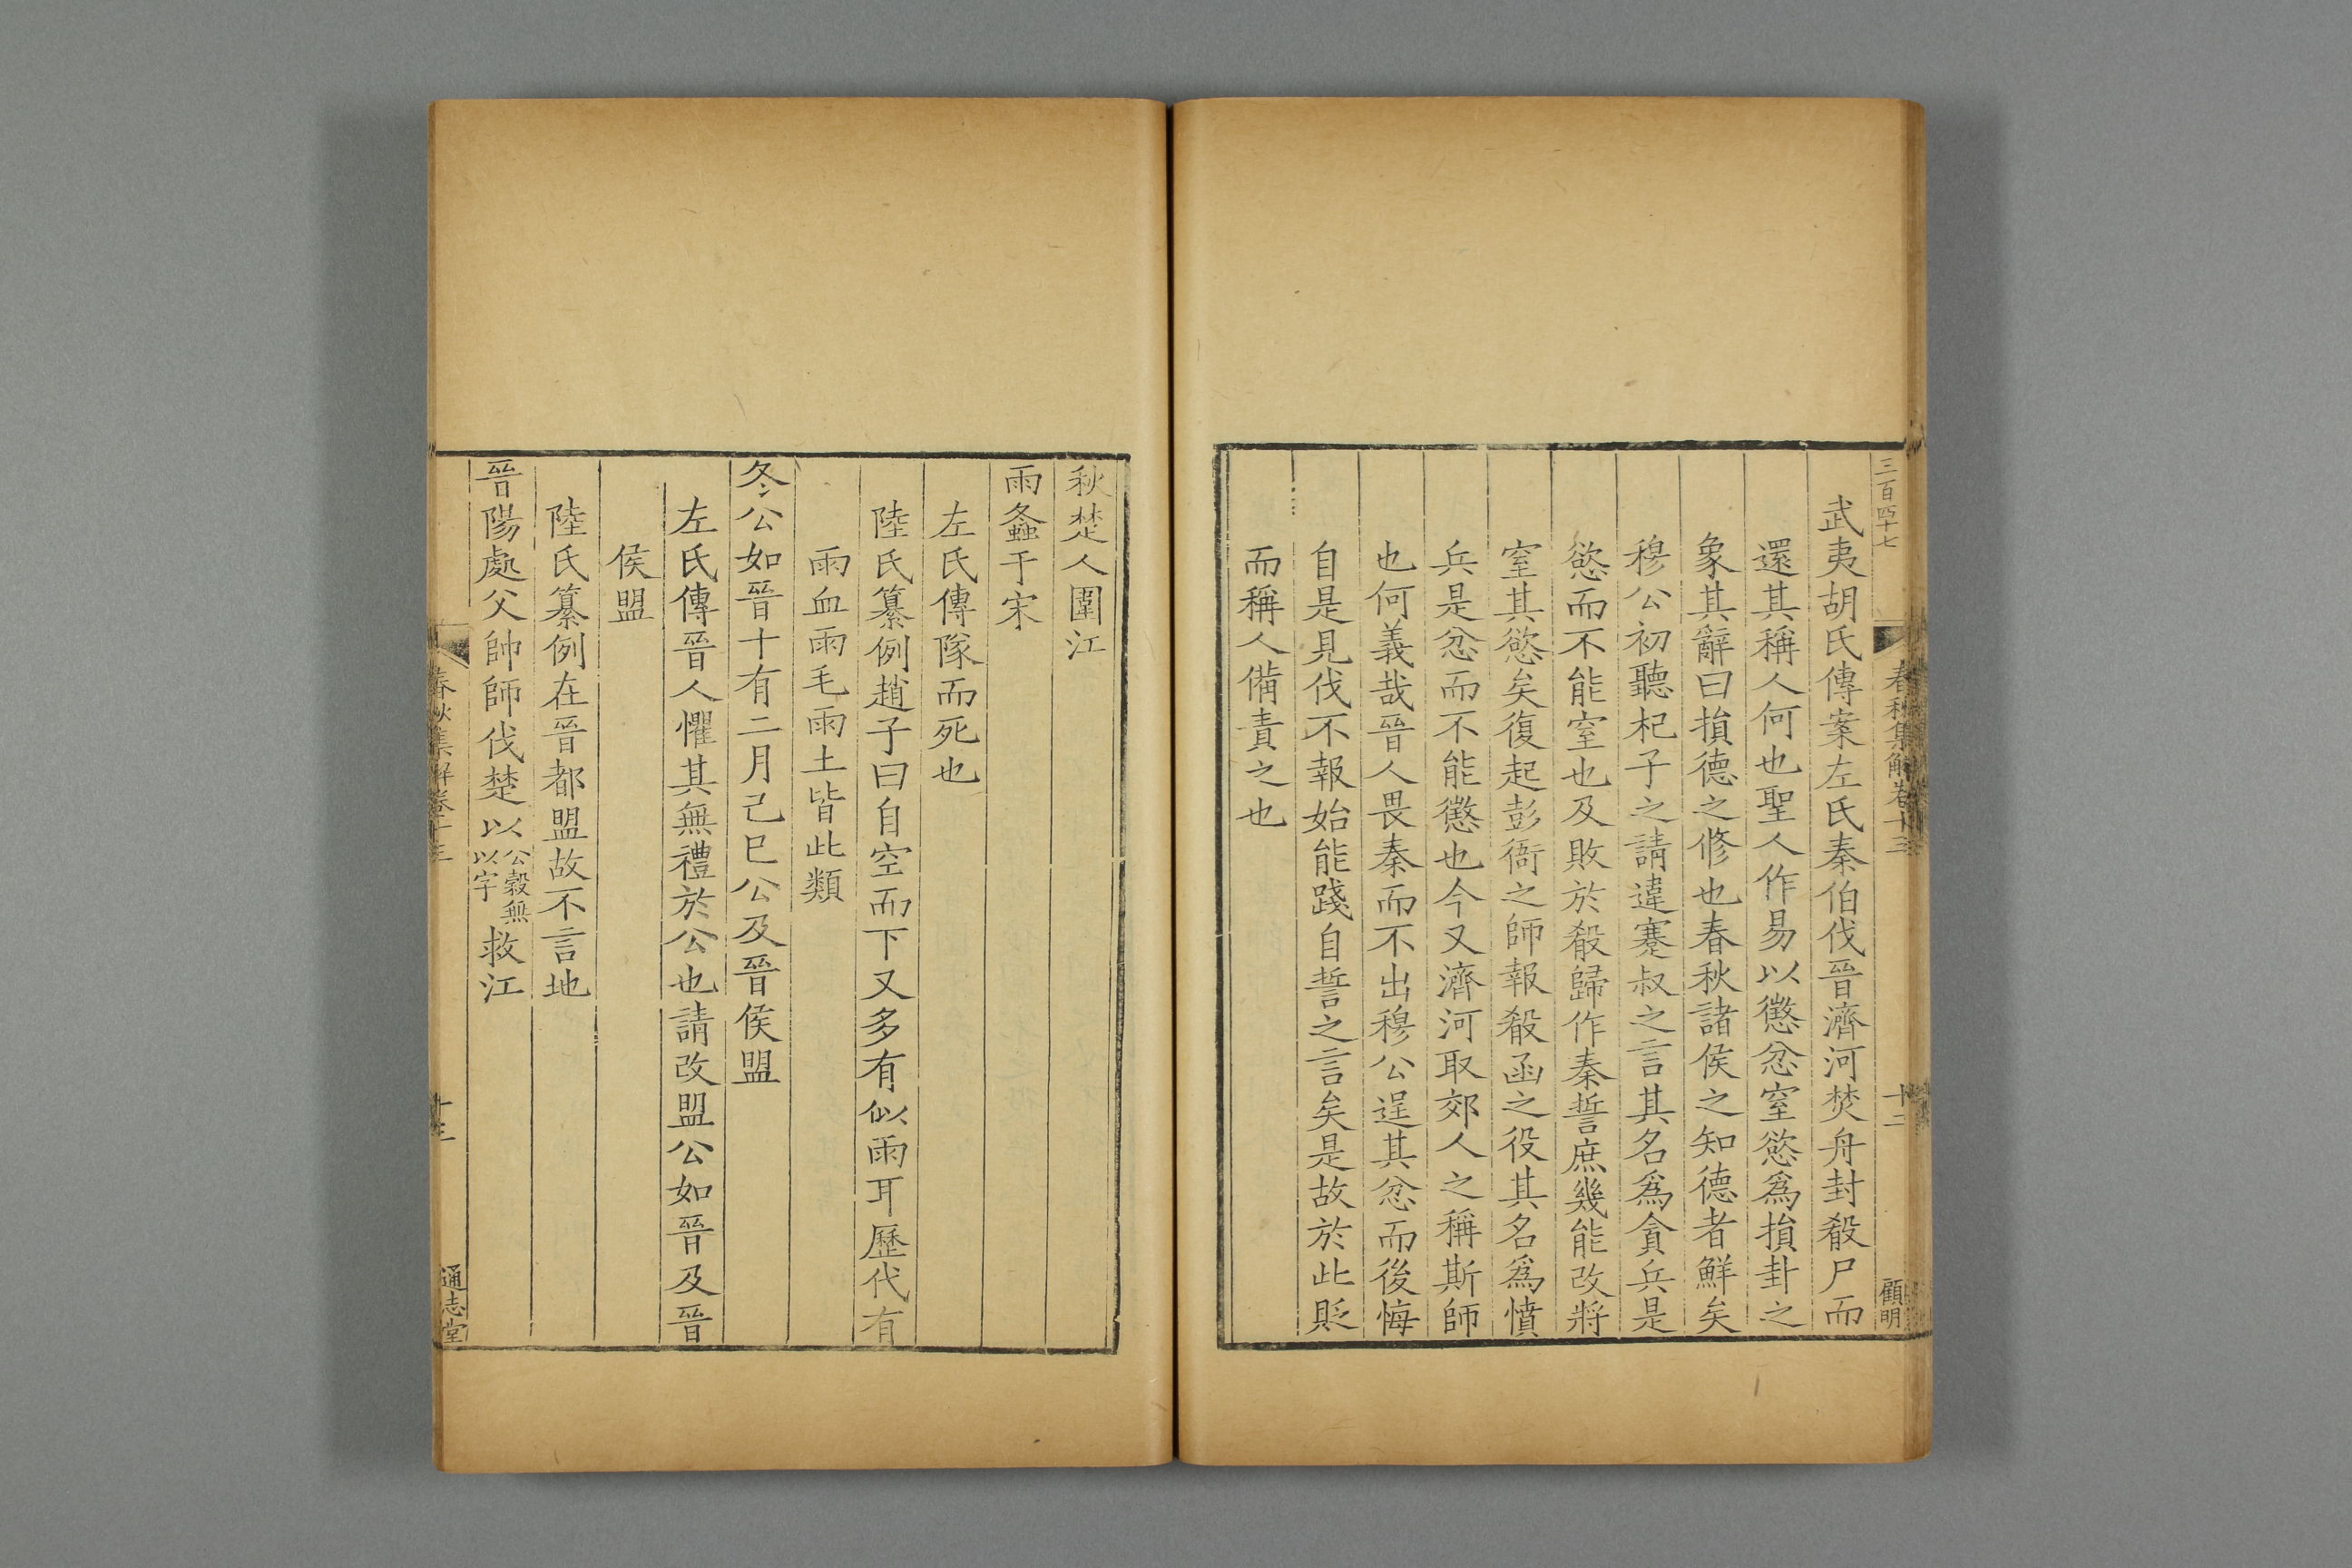 三百四十七
春秋集解卷十三
十二
顧明
武夷胡氏傳案左氏秦伯伐晉濟河焚舟封殽尸而
還其稱人何也聖人作易以懲忿窒慾爲損卦之
象其辭曰損德之修也春秋諸侯之知德者鮮矣
穆公初聽杞子之請違蹇叔之言其名爲貪兵是
慾而不能窒也及敗於殽歸作秦誓庶幾能改將
窒其慾矣復起彭衙之師報殽函之役其名爲憤
兵是忿而不能懲也今又濟河取郊人之稱斯師
也何義哉晉人畏秦而不出穆公逞其忿而後悔
自是見伐不報始能踐自誓之言矣是故於此貶
而稱人備責之也
秋楚人圍江
雨螽于宋
左氏傳隊而死也
陸氏纂例趙子曰自空而下又多有似雨耳歷代有
雨血雨毛雨土皆此類
冬公如晉十有二月己巳公及晉侯盟
左氏傳晉人懼其無禮於公也請改盟公如晉及晉
侯盟
陸氏纂例在晉都盟故不言地
晉陽處父帥師伐楚以公穀無以字救江
春秋集解卷十三
十三
通志堂